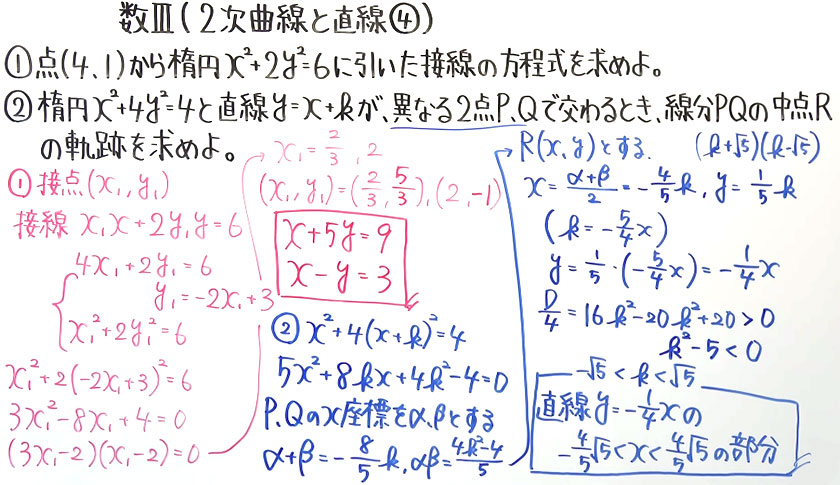 数Ⅲ(2次曲線と直線④)
①点(4、1)から楕円x²+2y²=6に引いた接線の方程式を求めよ。
②楕円x²+4y²=4と直線y=x+kが、異なる2点P、Qで交わるとき、線分PQの中点R
の軌跡を求めよ。
①接点(x₁, y₁)
接線 x₁x+2y₁y=6
4x₁+2y₁=6
y₁=-2x₁+3
x₁²+2y₁²=6
x₁²+2(-2x₁+3)²=6
3x₁²-8x₁+4=0
(3x₁-2)(x₁-2)=0
x₁=2/3, 2
(x₁, y₁)=(2/3, 5/3), (2, -1)
x+5y=9
x-y=3
②x²+4(x+k)²=4
5x²+8kx+4k²-4=0
P、Qのx座標をα、βとする
α+β=-8/5k, αβ=4k²-4/5
R(x, y)とする. (k+√5)(k-√5)
x=α+β/2=-4/5k, y=1/5k
(k=-5/4x)
y=1/5·(-5/4x)=-1/4x
D/4=16k²-20k²+20>0
k²-5<0
-√5<k<√5
直線y=-1/4xの
-4/5√5<x<4/5√5の部分